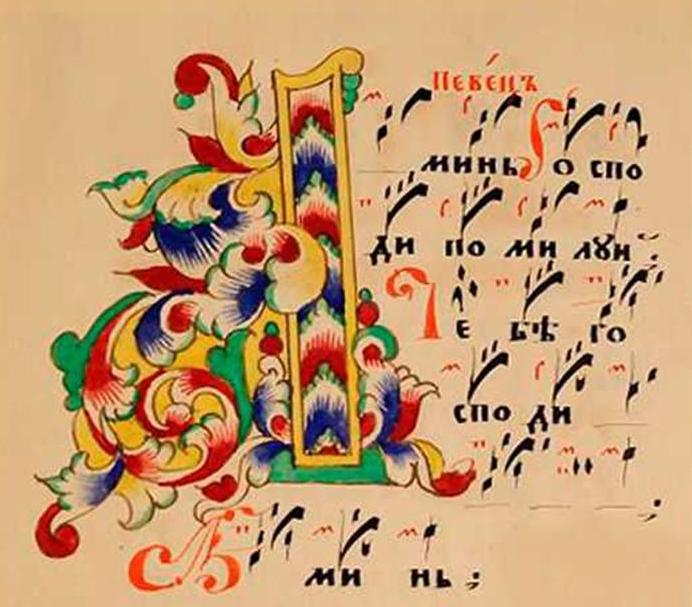 Певе́цъ
Аминь Г о спо
ди по ми лꙋи :
Т е бѣ го
спо ди ;
А ми нь ;